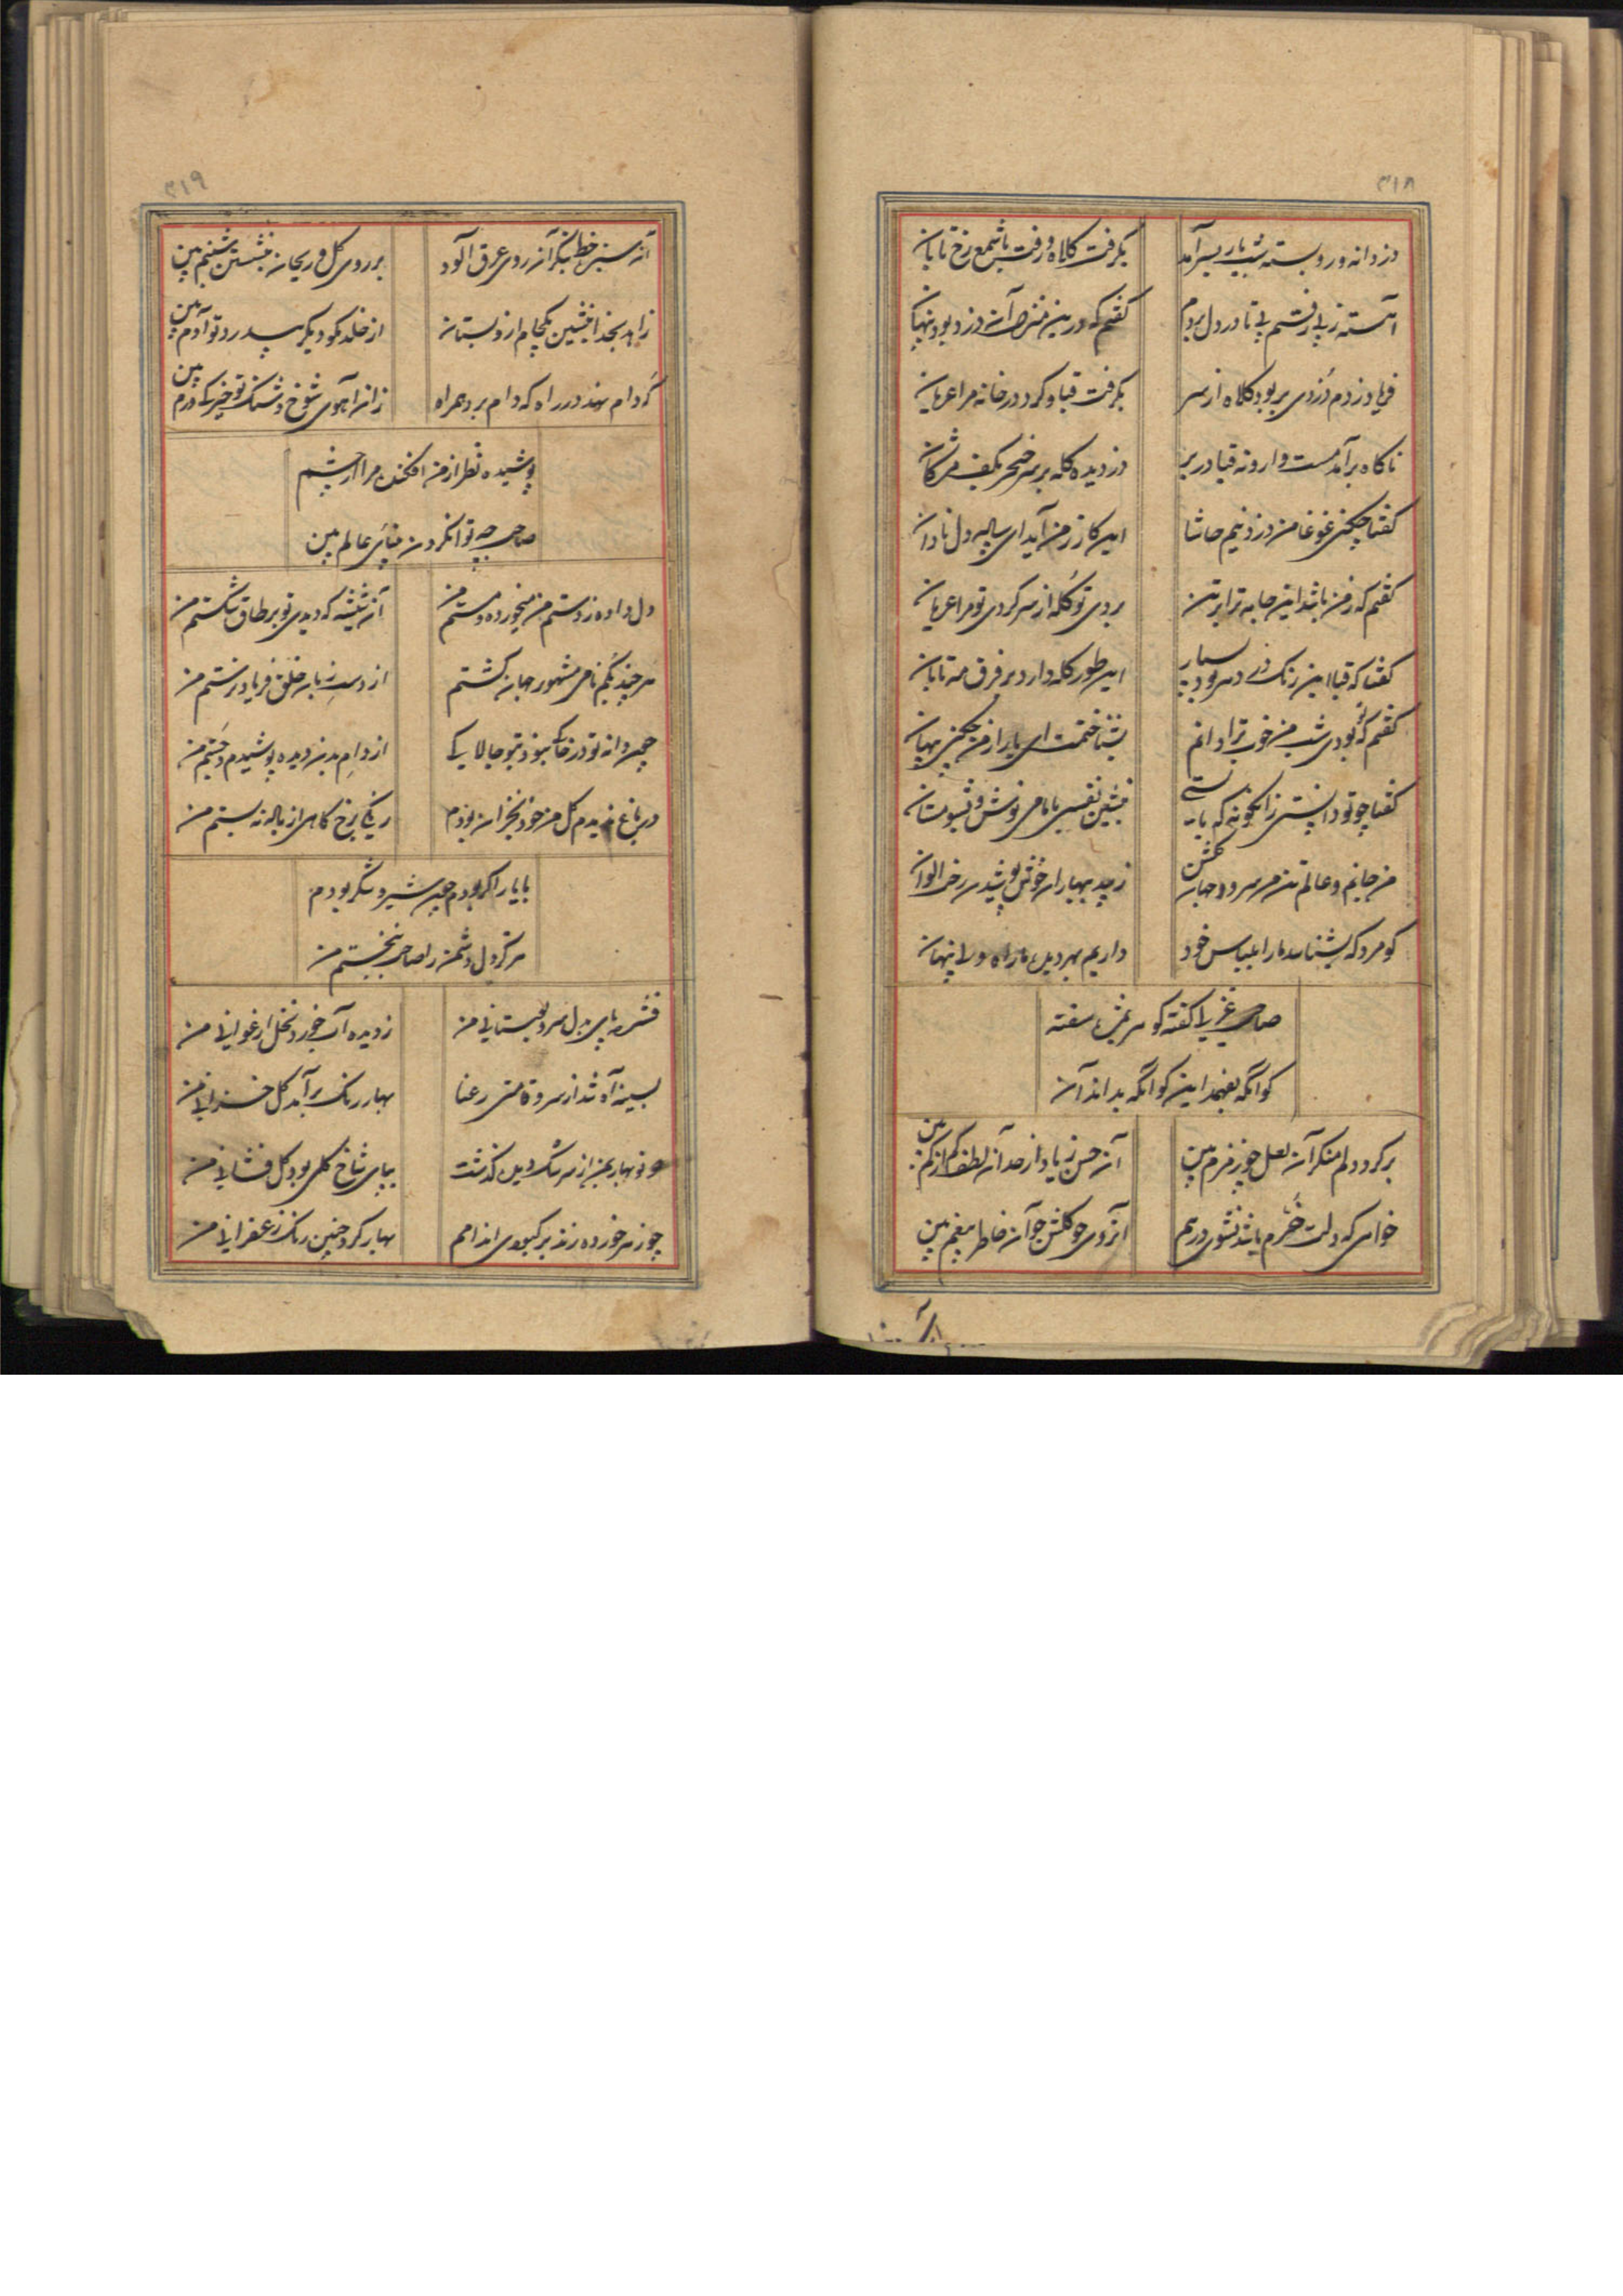 ۳۱۸
دزدانه و رو بسته شب یار بسر آمد
بگرفت کلاه و رفت با شمع رخ تابان
آهسته ز پی رفتم پی تا در دل بردم
گفتم که درین منزل آن دزد بود پنهان
فریاد زدم دزدی بربود کلاه از سر
بگرفت قبا و کرد در خانه مرا عریان
ناگاه برآمد مست وارونه قبا در بر
دزدیده کله بر سر خنجر بکف مژگان
گفتا چکنی غوغا من دزد نیم حاشا
این کار ز من آید ای ساده دل نادان
گفتم که ز من باشد این جامه ترا بر تن
بردی تو کله از سر کردی تو مرا عریان
گفتا که قبا این رنگ در دهر بود بسیار
این طور کله دارد بر فرق مه تابان
گفتم که تو بودی شب من خوب ترا دانم
بشناختمت ای یار از من چکنی پنهان
گفتا چو تو دانستی زانگونه که بایستی
بنشین نفسی با ما می نوش و بشو مستان
من جانم و عالم تن من سرو و جهان گلشن
زیبد بهاران خوش پوشیدن رخت الوان
کو مرد که بشناسد ما را بلباس خود
داریم بهر دیده ما راه ولی پنهان
صاحب غزلی گفته گوهر بمژه سفته
کو آنکه بفهمد این کو آنکه بداند آن
برگرد دلم منگر آن لعل چو زمزم بین
آن حسن زیاد از حد آن لطف کم از کم بین
خواهی که دلت خرم باشد نشوی درهم
آن روی چو گلشن جو آن خاطر بیغم بین
۳۱۹
آن سبز خط بنگر آن روی عرق آلود
بر روی گل و ریحان بنشستن شبنم بین
زاهد بخدا بنشین یکجام از و بستان
از خلد مگو دیگر پدر تو آدم بین
گه دام نهد در راه که دام برد همراه
زان آهوی شوخ و شنگ تو خیز که ورم بین
پوشیده نظر از من افکند مرا از چشم
صاحب چه توان کردن بینائی عالم بین
دل داده ز دستم من میخورده و مستم من
آن شیشه که دیدی تو بر طاق شکستم من
هرچند بگمنامی مشهور جهان گشتم
از دست زبان خلق فریاد نرستم من
چون دانه تو در خاک
از دام بدن دیده پوشیدم و جستم من
در باغ ندیدم گل من خود بخزان بودم
رنگی برخ کاهی از باله نبستم من
با یار اگر بودم چون شیر و شکر بودم
هرگز دل دشمن را صاحب نخستم من
فشرده پای بدل سرو بوستانی من
ز دیده آب خورد نخل ارغوانی من
بسینه آه شد از سرو قامتی رعنا
بهار رنگ برآمد گل خزانی من
نوبهار بمن از سرشک دیده گذشت
بپای شاخ گلی بود گل فشانی من
چو زهر خورده زند بر کبودی اندامم
بهار کرد چنین رنگ زعفرانی من